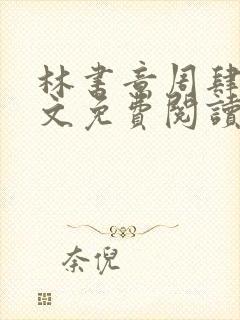 林書音周肆
文免費閱讀
奈倪